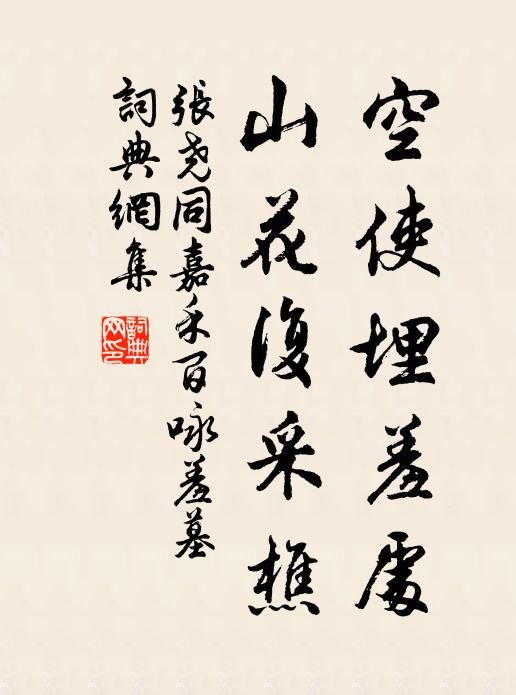 空使埋羞處
山花復采樵
張尧同嘉禾百咏羞墓
詞典網集
詞典网印